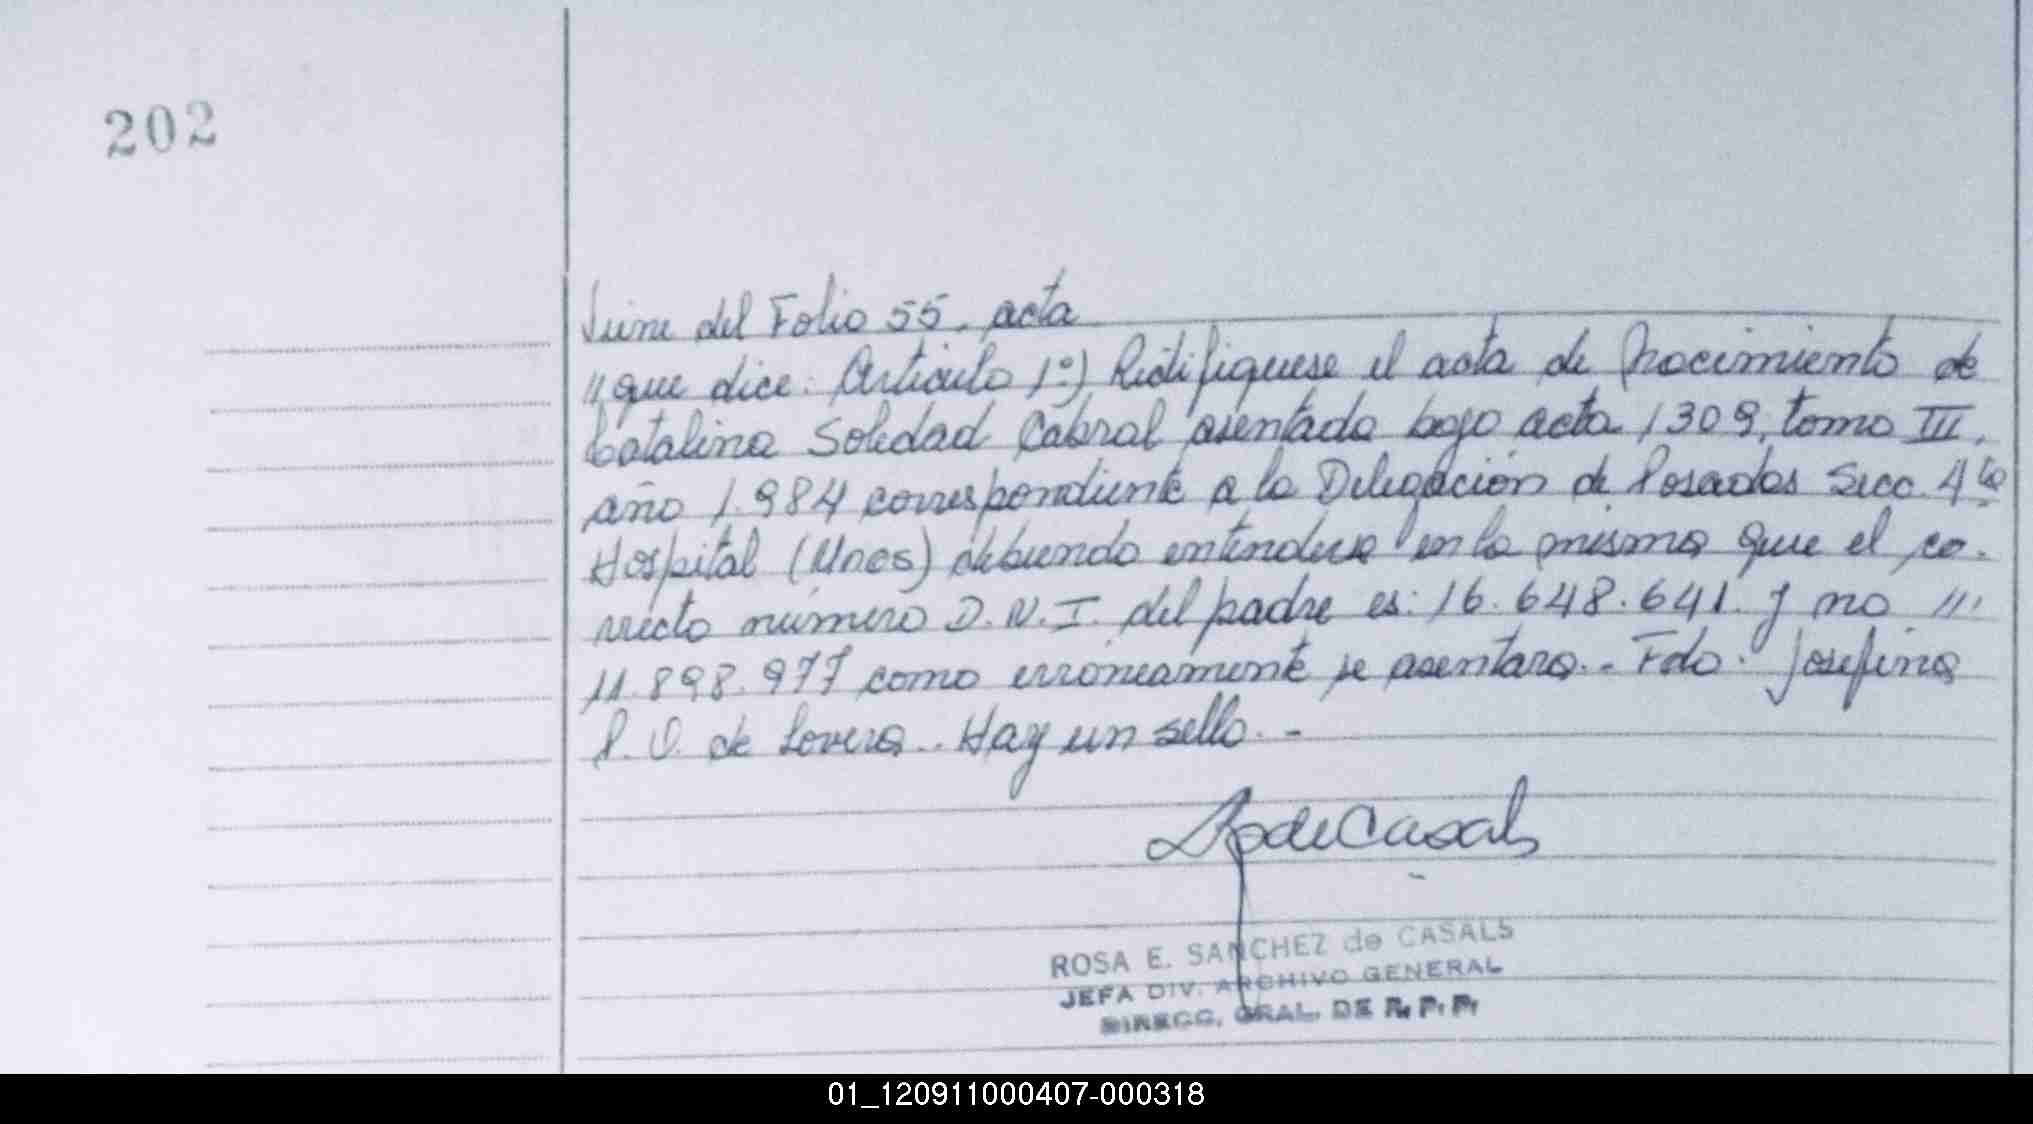 202
Viene del Folio 55. acta
"que dice: Artículo 1º) Rectifíquese el acta de Nacimiento de
Catalina Soledad Cabral asentada bajo acta 1309, tomo III,
año 1.984 correspondiente a la Delegación de Posadas Secc. 4ta
Hospital (Unos) debiendo entenderse en la misma que el co-
rrecto número D.N.I. del padre es: 16.648.641. y no "
11.898.977 como erróneamente se asentara.- Fdo. Josefina
P. V. de Lovera.. Hay un sello.-
ROSA E. SANCHEZ de CASALS
JEFA DIV. ARCHIVO GENERAL
DIRECC. GRAL. DE R. P. P.
01_120911000407-000318